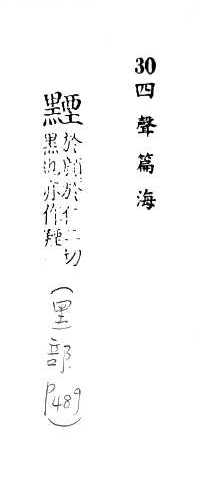 30 四聲篇海
黫 於顔於仁二切
黑也亦作
(黑部 P489)